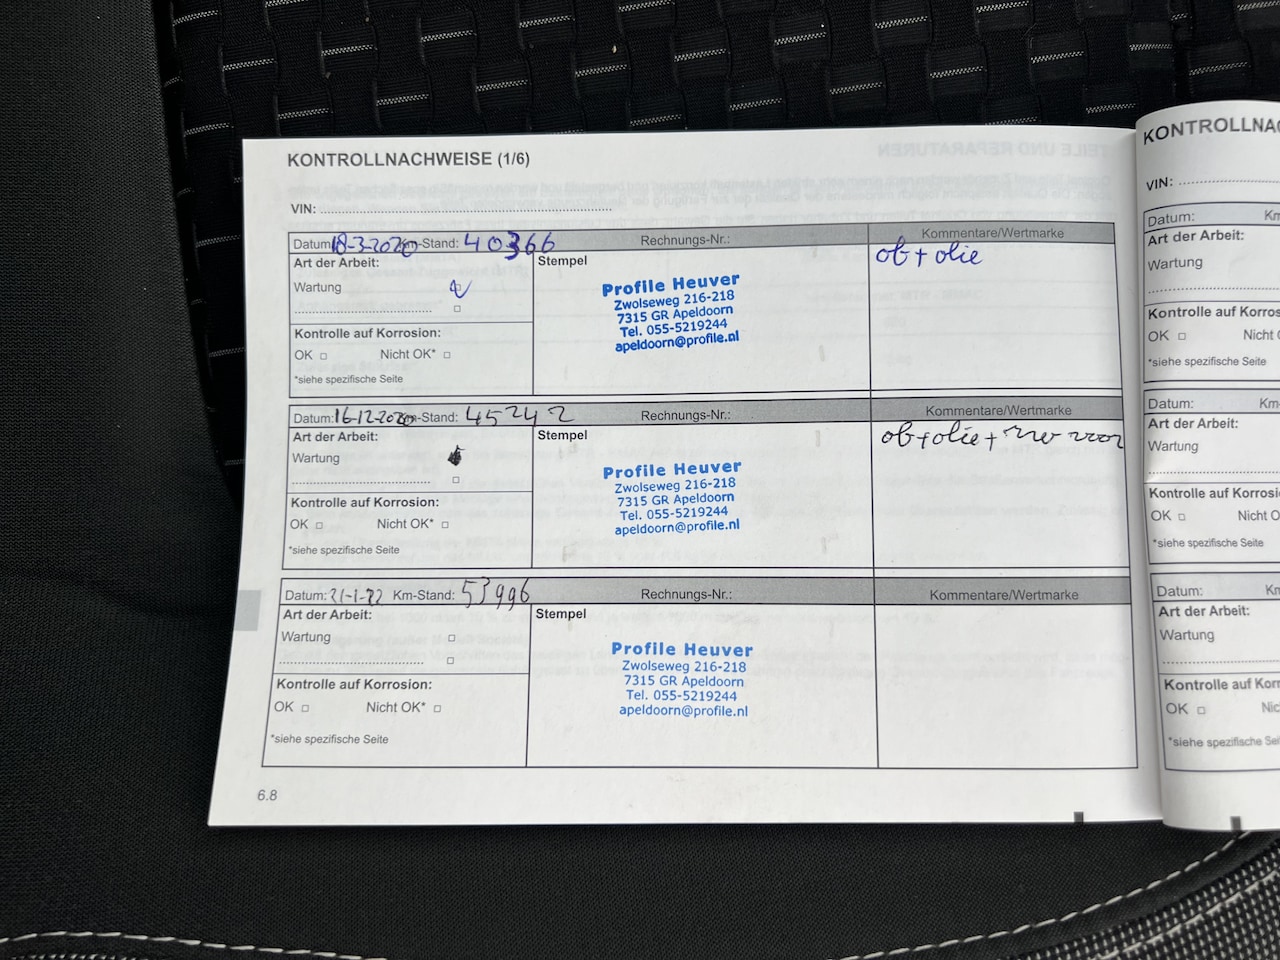 KONTROLLNACHWEISE (1/6)
VIN:
Datum: 18-3-2020 Km-Stand: 40366 Rechnungs-Nr.: Kommentare/Wertmarke
Art der Arbeit: Stempel ob + olie
Wartung
Profile Heuver
Zwolseweg 216-218
7315 GR Apeldoorn
Tel. 055-5219244
apeldoorn@profile.nl
Kontrolle auf Korrosion:
OK Nicht OK*
*siehe spezifische Seite
Datum: 16-12-2020 Km-Stand: 45242 Rechnungs-Nr.: Kommentare/Wertmarke
Art der Arbeit: Stempel ob + olie + voor
Wartung
Profile Heuver
Zwolseweg 216-218
7315 GR Apeldoorn
Tel. 055-5219244
apeldoorn@profile.nl
Kontrolle auf Korrosion:
OK Nicht OK*
*siehe spezifische Seite
Datum: 21-1-22 Km-Stand: 53996 Rechnungs-Nr.: Kommentare/Wertmarke
Art der Arbeit: Stempel
Wartung
Profile Heuver
Zwolseweg 216-218
7315 GR Apeldoorn
Tel. 055-5219244
apeldoorn@profile.nl
Kontrolle auf Korrosion:
OK Nicht OK*
*siehe spezifische Seite
6.8
KONTROLLNA
VIN:
Datum: Km
Art der Arbeit:
Wartung
Kontrolle auf Korros
OK Nicht
*siehe spezifische Seite
Datum: Km-
Art der Arbeit:
Wartung
Kontrolle auf Korrosi
OK Nicht O
*siehe spezifische Seite
Datum: Km
Art der Arbeit:
Wartung
Kontrolle auf Korr
OK Nic
*siehe spezifische Sei